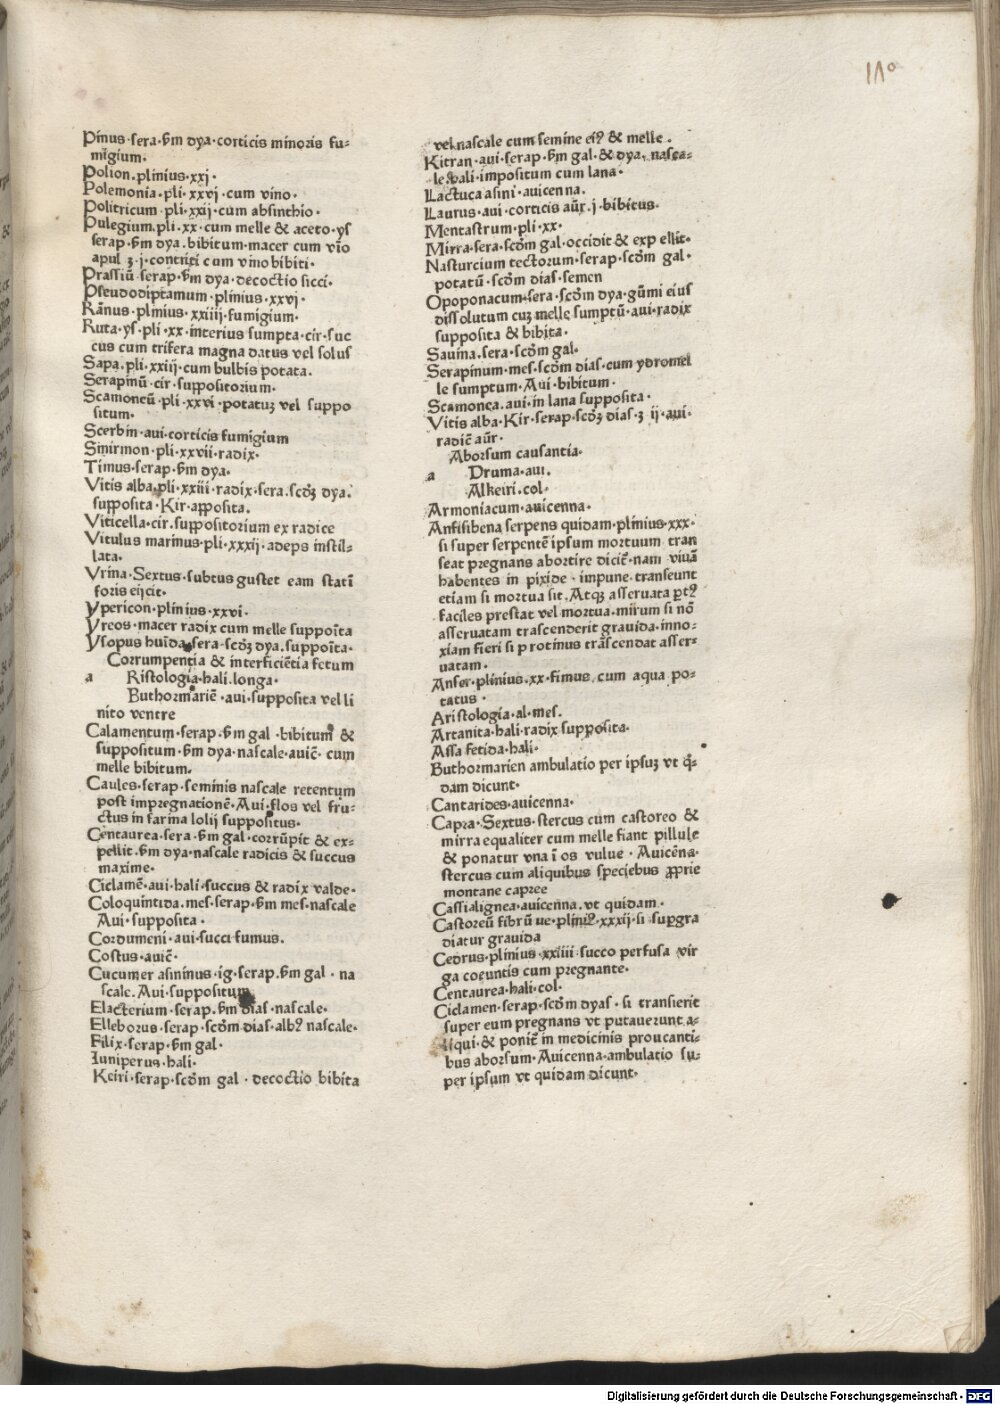 Pinus·sera·ẜm dya·corticis minoris fu-
migium·
Polion·plinius·xxj·
Polemonia·pli·xxvj·cum vino·
Politricum·pli·xxij·cum absinthio·
Pulegium·pli·xx·cum melle & aceto·ys
serap·ẜm dya·bibitum·macer cum vīo
apul ʒ·j·contriti cum vino bibiti·
Prassiū·serap·ẜm dya·decoctio sicci·
Pseudodiptamum·plinius·xxvj·
Rānus·plinius·xxiiij·fumigium·
Ruta·ys·pli·xx·interius sumpta·cir·suc
cus cum trifera magna datus vel solus
Sapa·pli·xxiij·cum bulbis potata·
Serapinū·cir·suppositorium·
Scamoneū·pli·xxvj·potatuʒ vel suppo
situm·
Scerbin·aui·corticis fumigium
Smirmon·pli·xxvii·radix·
Timus·serap·ẜm dya·
Vitis alba·pli·xxiii·radix·sera·scdʒ dya·
supposita·Kir·apposita·
Viticella·cir·suppositorium ex radice
Vitulus marinus·pli·xxxij·adeps instil-
lata·
Vrina·Sextus·subtus gustet eam statī
foris eijcit·
Ypericon·plinius·xxvi·
Yreos·macer radix cum melle suppoīta
Ysopus huīda·sera·scdʒ dya·suppoīta·
Corrumpentia & interficiētia fetum
a Ristologia·hali·longa·
Buthormariē·aui·supposita vel li
nito ventre
Calamentum·serap·ẜm gal·bibitum &
suppositum·ẜm dya·nascale·auic̄·cum
melle bibitum·
Caules·serap·seminis nascale retentum
post impregnationē·Aui·flos vel fru-
ctus in farina lolij suppositus·
Centaurea·sera·ẜm gal·corrūpit & ex-
pellit·ẜm dya·nascale radicis & succus
maxime·
Ciclamē·aui·hali·succus & radix valde·
Coloquintida·mes·serap·ẜm mes·nascale
Aui·supposita·
Cordumeni·aui·succi fumus·
Costus·auic̄·
Cucumer asininus·ig·serap·ẜm gal·na
scale·Aui·suppositum
Elacterium·serap·ẜm dias·nascale·
Elleborus·serap·scdm dias·albꝰ nascale·
Filix·serap·ẜm gal·
Iuniperus·hali·
Keiri·serap·scdm gal·decoctio bibita
110
vel nascale cum semine eiꝰ & melle·
Kitran·aui·serap·ẜm gal·& dya·nasca-
le hali·impositum cum lana·
Lactuca asini·auicenna·
Laurus·aui·corticis aūr·j·bibitus·
Mentastrum·pli·xx·
Mirra·sera·scdm gal·occidit & expellit·
Nasturcium tectorum·serap·scdm gal·
potatū·scdm dias·semen
Opoponacum·sera·scdm dya·gūmi eius
dissolutum cuʒ melle sumptū·aui·radix
supposita & bibita·
Sauina·sera·scdm gal·
Serapinum·mes·scdm dias·cum ydromel
le sumptum·Aui·bibitum·
Scamonea·aui·in lana supposita·
Vitis alba·Kir·serap·scdʒ dias·ʒ ij·aui·
radic̄ aūr·
Aborsum causantia·
a Druma·aui·
Alkeiri·col·
Armoniacum·auicenna·
Anfisibena serpens quidam·plinius·xxx·
si super serpentē ipsum mortuum tran
seat pregnans abortire dicit̄·nam viuā
habentes in pixide·impune transeunt
etiam si mortua sit·Atqʒ asseruata ꝑtꝰ
faciles prestat vel mortua·mirum si nō
asseruatam trascenderit grauida·inno-
xiam fieri si protinus trāscendat asser-
uatam·
Anser·plinius·xx·fimus·cum aqua po-
tatus·
Aristologia·al·mes·
Artanita·hali·radix supposita·
Assa fetida·hali·
Buthormarien ambulatio per ipsuʒ vt q̇-
dam dicunt·
Cantarides·auicenna·
Capra·Sextus·stercus cum castoreo &
mirra equaliter cum melle fiant pillule
& ponatur vna ī os vulue·Auicēna·
stercus cum aliquibus speciebus ꝓprie
montane capree
Cassialignea·auicenna·vt quidam·
Castoreū fibrū ue·pliniꝰ·xxxij·si suꝑgra
diatur grauida
Cedrus·plinius·xxiiii·succo perfusa vir
ga coeuntis cum pregnante·
Centaurea·hali·col·
Ciclamen·serap·scdm dyas·si transierit
super eum pregnans vt putauerunt a-
liqui·& ponit̄ in medicinis prouocanti-
bus aborsum·Auicenna·ambulatio su-
per ipsum vt quidam dicunt·
Digitalisierung gefördert durch die Deutsche Forschungsgemeinschaft · DFG